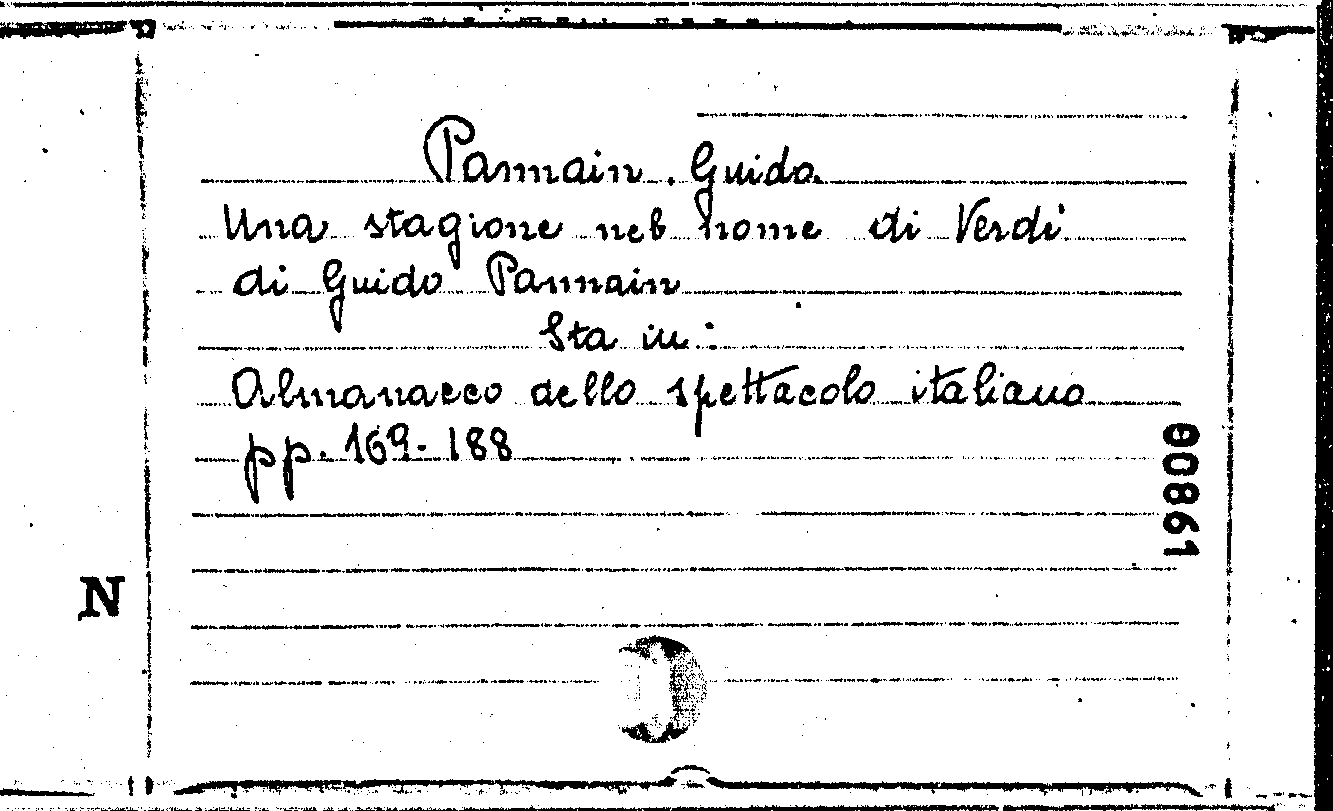 Pannain, Guido.
Una stagione nel nome di Verdi
di Guido Pannain
Sta in:
Almanacco dello spettacolo italiano
pp. 169-188
00861
N